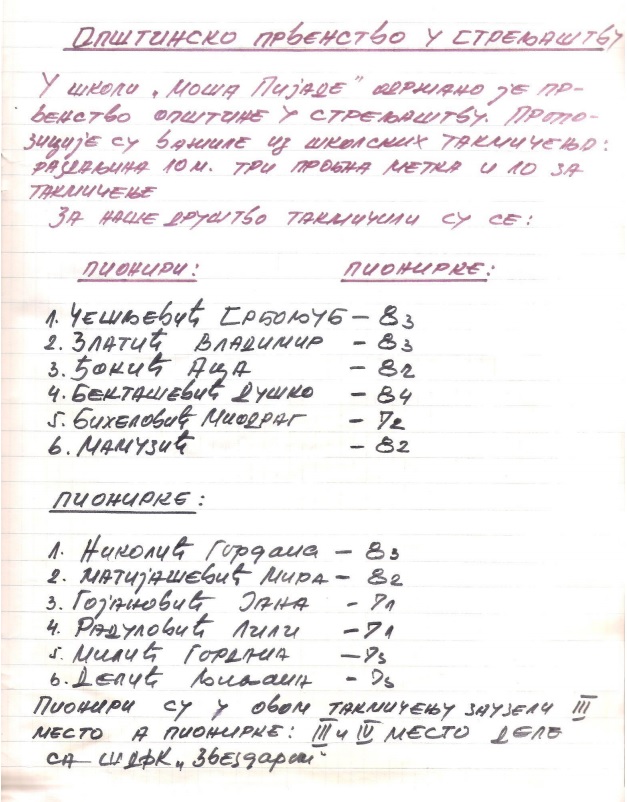 ОПШТИНСКО ПРВЕНСТВО У СТРЕЉАШТВУ
У ШКОЛИ „МОША ПИЈАДЕ" ОДРЖАНО ЈЕ ПР-
ВЕНСТВО ОПШТИНЕ У СТРЕЉАШТВУ. ПРОПО-
ЗИЦИЈЕ СУ ВАЖИЛЕ ИЗ ШКОЛСКИХ ТАКМИЧЕЊА:
РАЗДАЉИНА 10 М. ТРИ ПРОБНА МЕТКА И 10 ЗА
ТАКМИЧЕЊЕ
ЗА НАШЕ ДРУШТВО ТАКМИЧИЛИ СУ СЕ:
ПИОНИРИ: ПИОНИРКЕ:
1. ЧЕШЉЕВИЋ СРБОЉУБ – 83
2. ЗЛАТИЋ ВЛАДИМИР – 83
3. ЂОКИЋ АЦА – 82
4. БЕКТАШЕВИЋ ДУШКО – 84
5. БИХЕЛОВИЋ МИОДРАГ – 72
6. МАМУЗИЋ – 82
ПИОНИРКЕ:
1. НИКОЛИЋ ГОРДАНА – 83
2. МАТИЈАШЕВИЋ МИРА – 82
3. ГОЈАНОВИЋ ЈАНА – 71
4. РАДУЛОВИЋ ЛИЛИ – 71
5. МИЛИЋ ГОРДАНА – 75
6. ДЕЛИЋ ЉИЉАНА – 75
ПИОНИРИ СУ У ОВОМ ТАКМИЧЕЊУ ЗАУЗЕЛИ III
МЕСТО А ПИОНИРКЕ: III И IV МЕСТО ДЕЛЕ
СА ШДФК „ЗВЕЗДАРОМ"